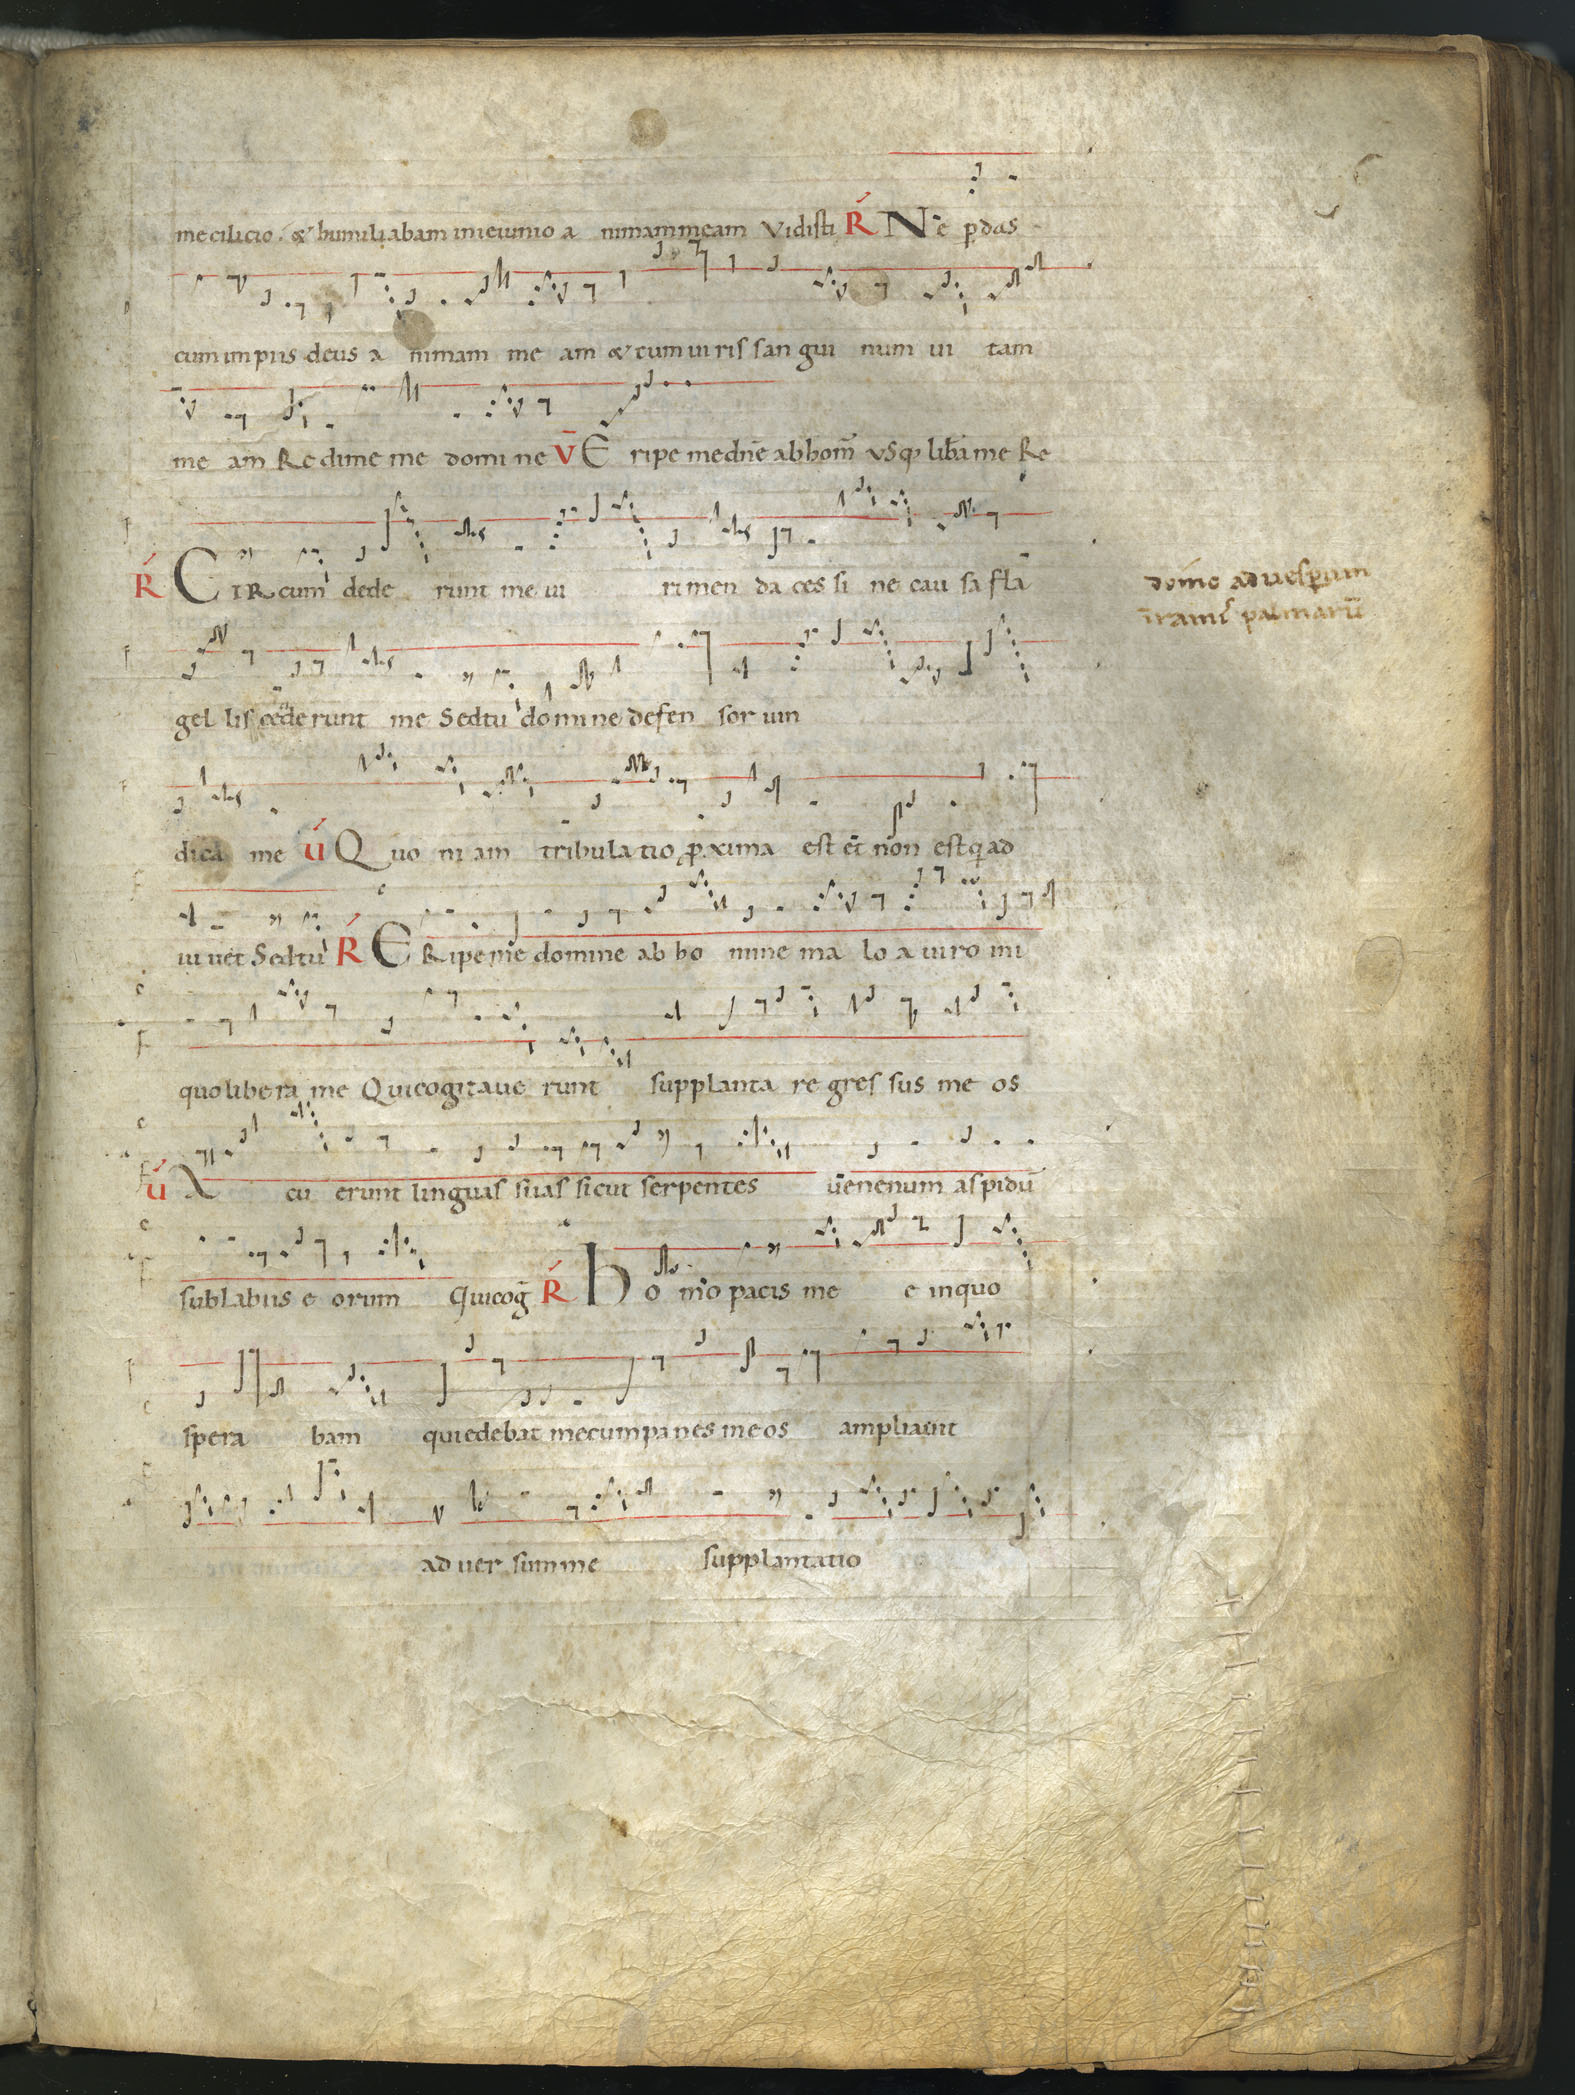 me cilicio. & humiliabam in ieiunio a nimam meam Vidisti R̃ Ne p̱das
cum impiis deus a nimam me am & cum uiris san gui num ui tam
me am Redime me domi ne V̄ E ripe me dn̄e ab hom̄ vsq; lib̄a me Re
R̃ CIRcum dede runt me ui ri men da ces si ne cau sa fla
gel lis cede runt me Sed tu domine defen sor uin
domīc ad uesp̱um
in ramis palmarū
dica me V́ Quo ni am tribula tio p̱xima est et non est q ad
iu uet Sed tu R̃ ERipe me domine ab ho mine ma lo a uiro ini
quo libera me Qui cogitaue runt supplanta re gres sus me os
V́ A cu erunt linguas suas sicut serpentes uenenum aspidū
sub labiis e orum Qui cog̃ R̃ ho mo pacis me e in quo
spera bam qui edebat mecum panes meos ampliauit
ad uer sum me supplantatio